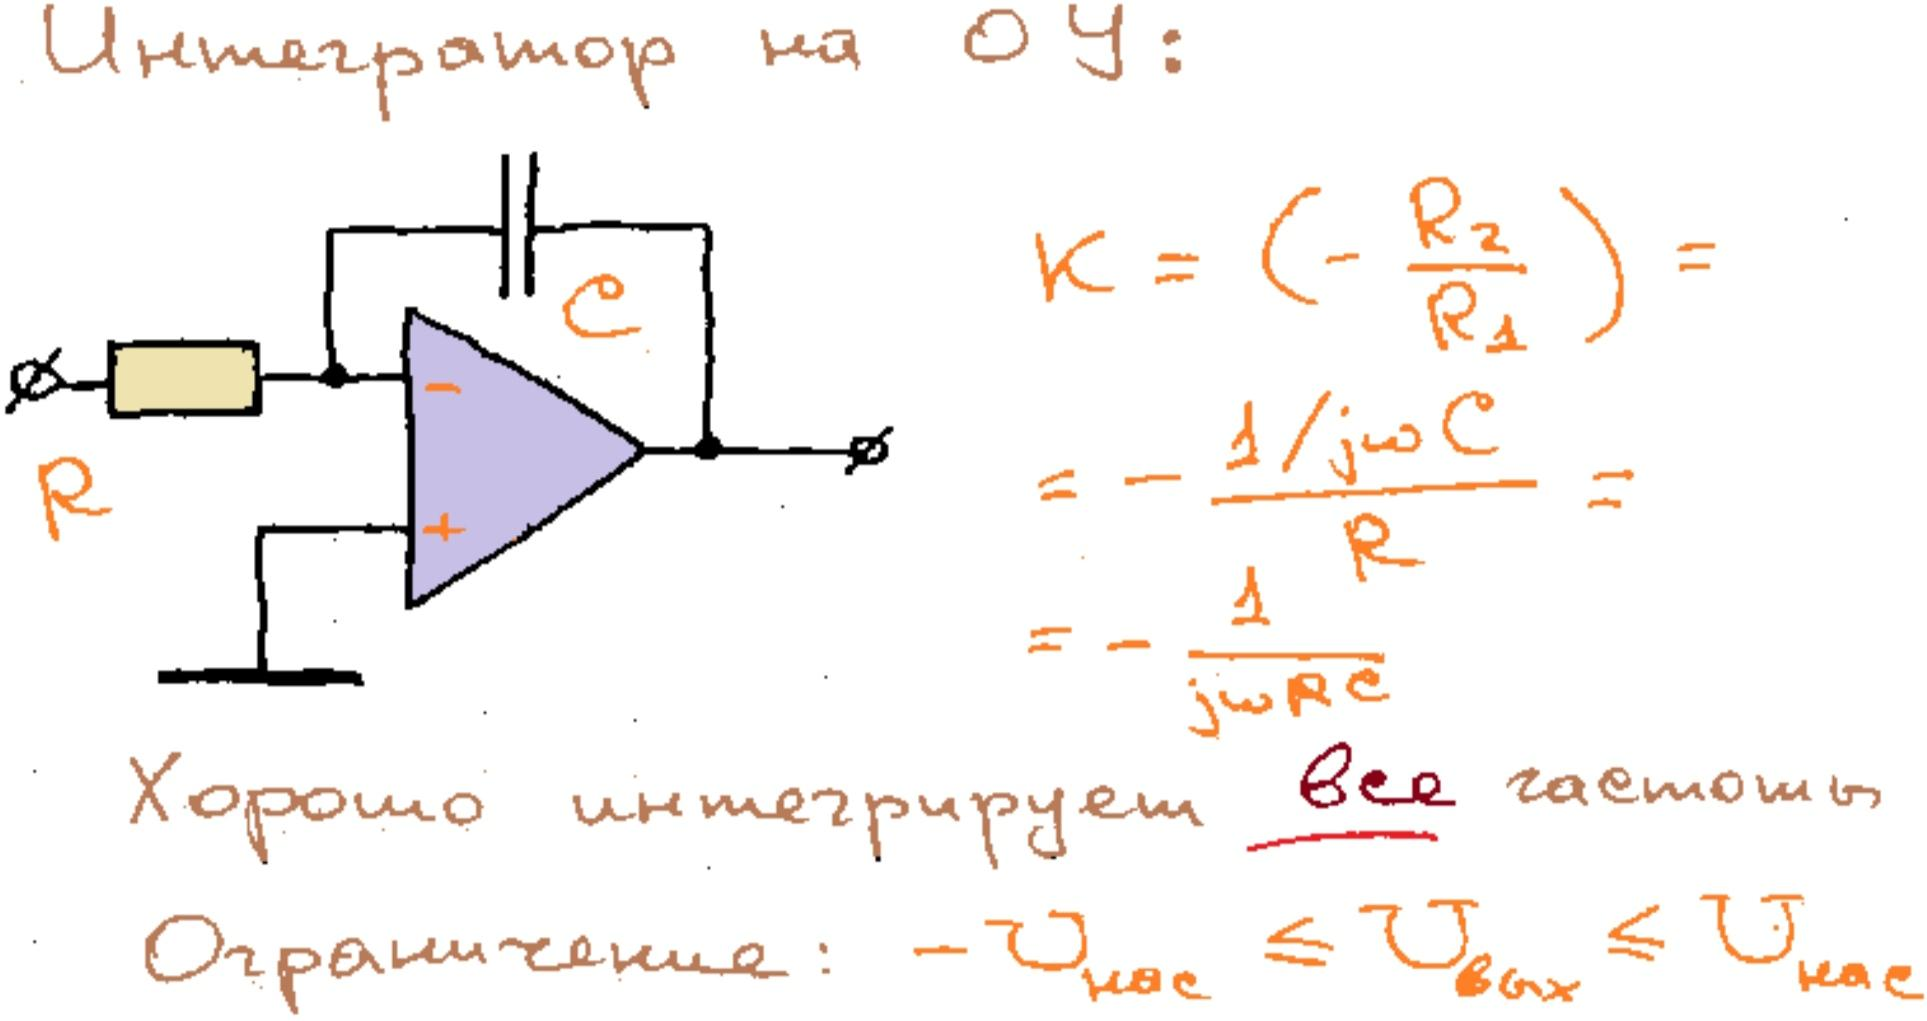 Интегратор на ОУ:
C
R
-
+
K = (- R₂/R₁) =
= - 1/jωC / R =
= - 1/jωRC
Хорошо интегрирует все частоты
Ограничение: -Uнас ≤ Uвых ≤ Uнас